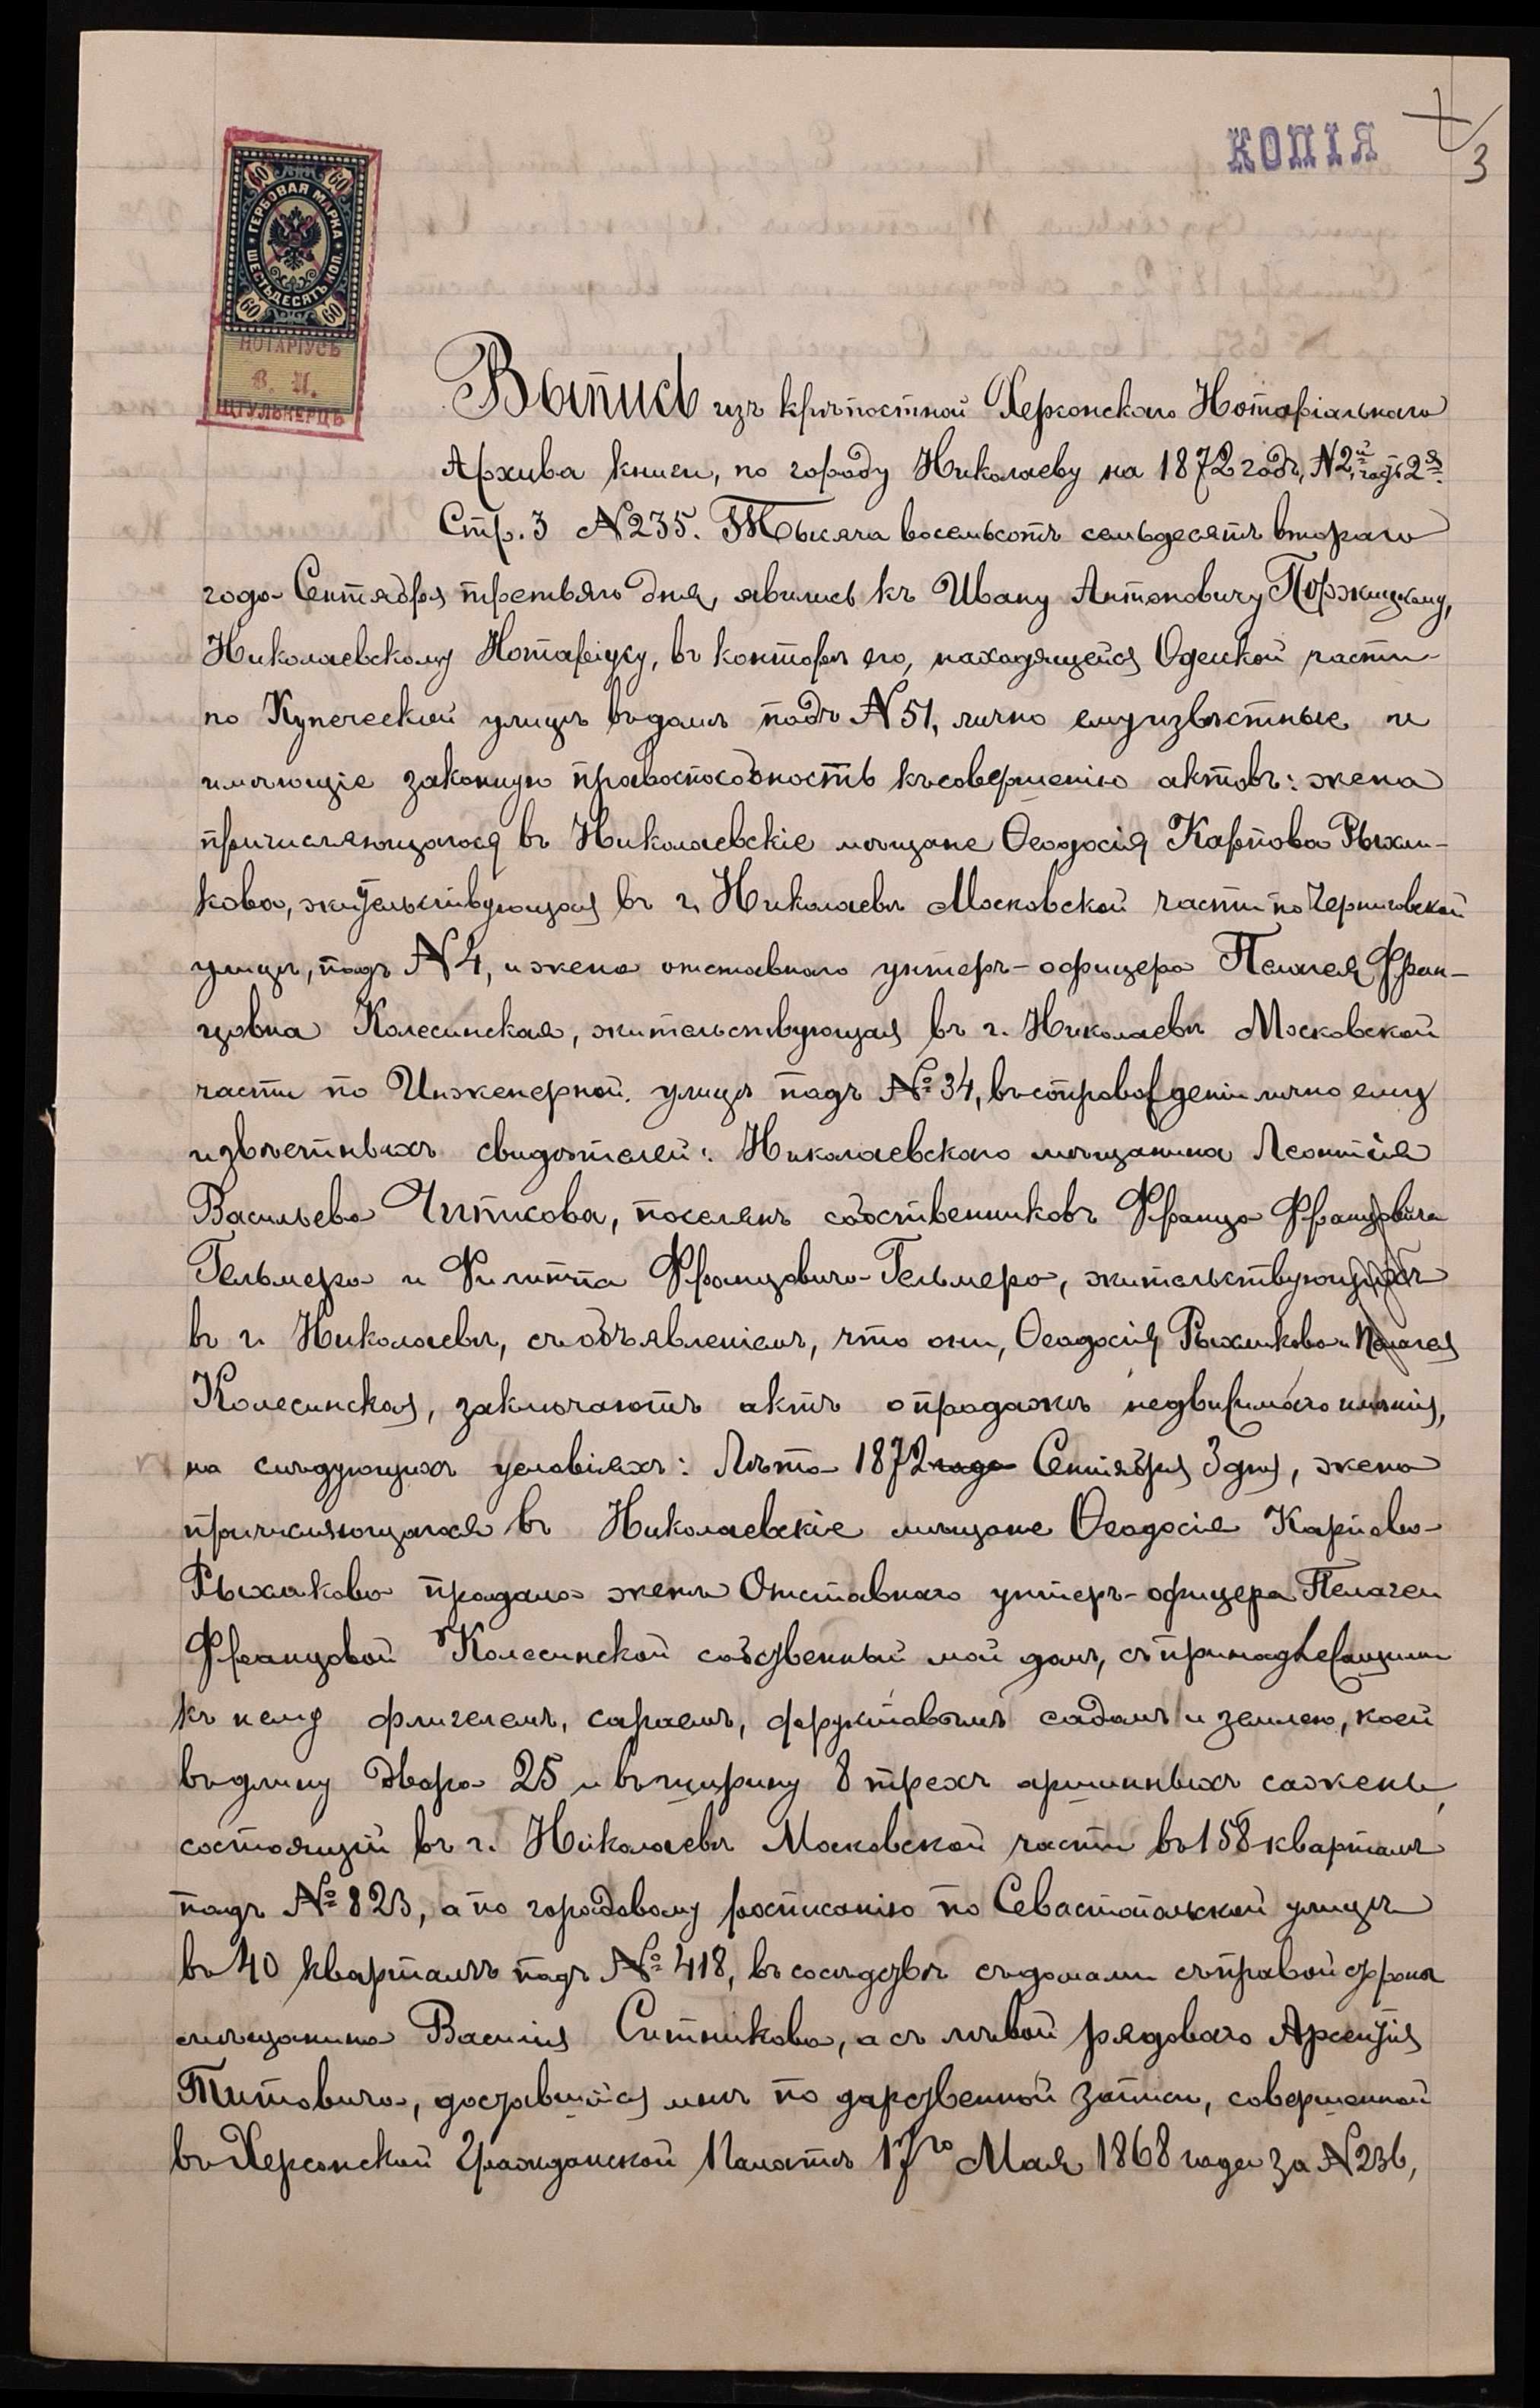 КОПІЯ
3
60 60
ГЕРБОВАЯ МАРКА
ШЕСТЬДЕСЯТЪ КОП.
60 60
НОТАРІУСЪ
В. И.
ШТУЛЬКЕРЦЪ
Выпись изъ крѣпостной Херсонскаго Нотаріальнаго
Архива книги, по городу Николаеву на 1872 годъ, №2й, часть 2я.
Стр. 3 №235. Тысяча восемьсотъ семьдесятъ втораго
года Сентября третьяго дня, явились къ Ивану Антоновичу Поржицкому,
Николаевскому Нотаріусу, въ конторѣ его, находящейся Одесской части
по Купеческой улицѣ въ домѣ подъ №51, лично ему извѣстные и
имѣющіе законную правоспособность къ совершенію актовъ: жена
причисляющагося въ Николаевскіе мѣщане Ѳеодосія Карпова Рыжи-
кова, жительствующая въ г. Николаевѣ Московской части по Черниговской
улицѣ, подъ №4, и жена отставнаго унтеръ-офицера Пелагея Фран-
цовна Колесинская, жительствующая въ г. Николаевѣ Московской
части по Инженерной улицѣ подъ № 34, въ сопровожденіи лично ему
извѣстныхъ свидѣтелей: Николаевскаго мѣщанина Леонтія
Васильева Читкова, поселянъ собственниковъ Франца Францовича
Гельмера и Филиппа Францовича Гельмера, жительствующихъ
въ г. Николаевѣ, съ объявленіемъ, что они, Ѳеодосія Рыжикова и Пелагея
Колесинская, заключаютъ актъ о продажѣ недвижимаго имѣнія,
на слѣдующихъ условіяхъ: Лѣта 1872 года Сентября 3 дня, жена
причисляющагося въ Николаевскіе мѣщане Ѳеодосія Карпова
Рыжикова продала женѣ Отставнаго унтеръ-офицера Пелагеи
Францовой Колесинской собственный мой домъ, съ принадлежащими
къ нему флигелемъ, сараемъ, фруктовымъ садомъ и землею, коей
въ длину двора 25 и въ ширину 8 трехъ аршинныхъ сажень,
состоящій въ г. Николаевѣ Московской части въ 158 кварталѣ
подъ № 823, а по городовому росписанію по Севастопольской улицѣ
въ 40 кварталѣ подъ № 418, въ сосѣдствѣ съ домами съ правой стороны
мѣщанина Василія Ситникова, а съ лѣвой рядоваго Арсентія
Титовича, доставшійся мнѣ по дарственной записи, совершенной
въ Херсонской Гражданской Палатѣ 17го Мая 1868 года за №236,